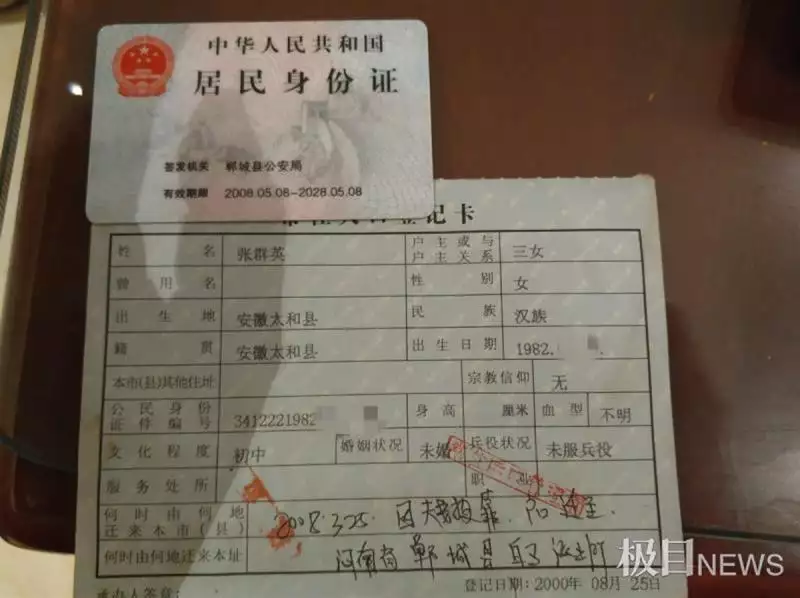 中华人民共和国
居民身份证
签发机关 郸城县公安局
有效期限 2008.05.08-2028.05.08
登记卡
姓名 张群英 户主或与户主关系 三女
曾用名 性别 女
出生地 安徽太和县 民族 汉族
籍贯 安徽太和县 出生日期 1982.
本市(县)其他住址 宗教信仰 无
公民身份证件编号 3412221982 身高 厘米 血型 不明
文化程度 初中 婚姻状况 未婚 兵役状况 未服兵役
服务处所 职业
何时由何地迁来本市(县) 2008.3.25. 因夫妻投靠
何时由何地迁来本址 河南省郸城县
登记日期:2000年 08月 25日
承办人签章:
极目NEWS